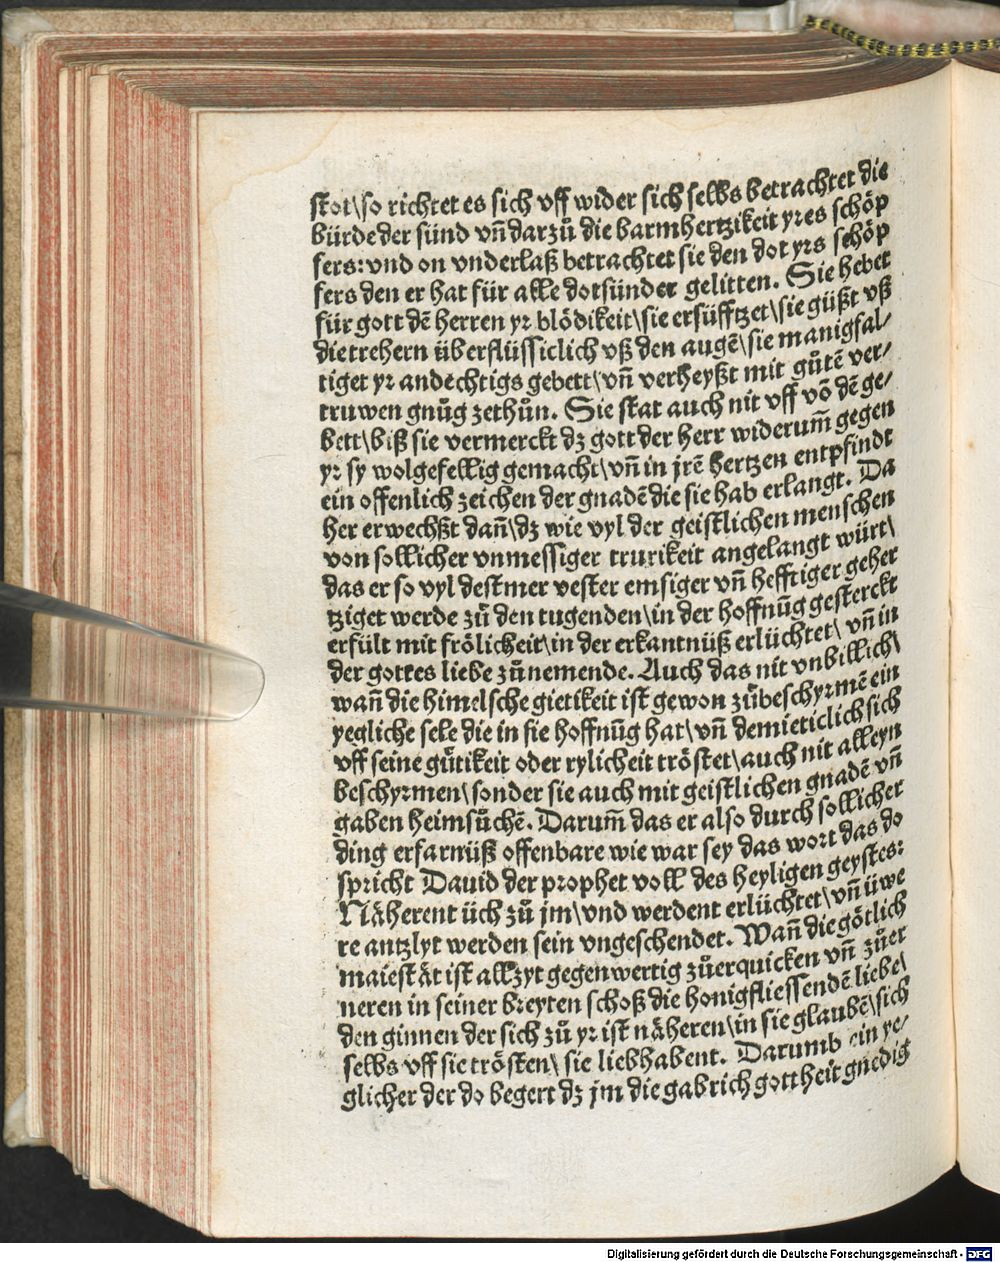 stot\so richtet es sich vff wider sich selbs betrachtet die
bürde der sünd vn̄ darzů die barmhertzikeit yres schöp
fers: vnd on vnderlaß betrachtet sie den dot yrs schöp
fers den er hat für alle dotsünder gelitten. Sie hebet
für gott dē herren yr blödikeit\sie ersüfftzet\sie güßt vß
die trehern überflüssiclich vß den augē\sie manigfal/
tiget yr andechtigs gebett\vn̄ verheyßt mit gůtē ver/
truwen gnůg zethůn. Sie stat auch nit vff vō dē ge/
bett\biß sie vermerckt dz gott der herr widerum̄ gegen
yr sy wolgefellig gemacht\vn̄ in jrē hertzen entpfindt
ein offenlich zeichen der gnadē die sie hab erlangt. Da
her erwechßt dan̄\dz wie vyl der geistlichen menschen
von sollicher vnmessiger trurikeit angelangt würt\
das er so vyl destmer vester emsiger vn̄ hefftiger geher
tziget werde zů den tugenden\in der hoffnūg gesterckt
erfült mit frölicheit\in der erkantnüß erlüchtet\ vn̄ in
der gottes liebe zůnemende. Auch das nit vnbillich\
wan̄ die himelsche gietikeit ist gewon zůbeschyrmē ein
yegliche sele die in sie hoffnūg hat\vn̄ demieticlich sich
vff seine gůtikeit oder rylicheit tröstet\auch nit alleyn
beschyrmen\sonder sie auch mit geistlichen gnadē vn̄
gaben heimsůchē. Darum̄ das er also durch sollicher
ding erfarnüß offenbare wie war sey das wort das do
spricht Dauid der prophet voll des heyligen geystes:
Näherent üch zů jm\vnd werdent erlüchtet\vn̄ üwe
re antzlyt werden sein vngeschendet. Wan̄ die götlich
maiestät ist allzyt gegenwertig zůerquicken vn̄ zůer
neren in seiner breyten schoß die honigfliessendē liebe\
den ginnen der sich zů yr ist näheren\in sie glaubē\sich
selbs vff sie trösten\ sie liebhabent. Darumb ein ye/
glicher der do begert dz jm die gabrich gottheit gnedig
Digitalisierung gefördert durch die Deutsche Forschungsgemeinschaft - DFG